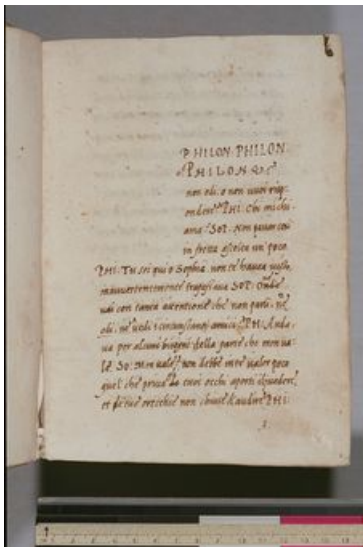 PHILON PHILON
PHILON
non odi, o non vuoi risp-
ondere? PHI. Chi mi chi-
ama? SOP. Non passar così
in fretta ascolta un poco
PHI. Tu sei qui o Sophia non te haveva vista,
inavvertentemente trapassava SOP. Onde
vai con tanta attentione che non parli, né
odi, né vedi i circunstanti amici? PHI. Anda-
va per alcuni bisogni della parte che men va-
le. SO: Men vale? non debbe in te valer poco
quel che priva tuoi occhi aperti
et orecchie non chiuse PHI: